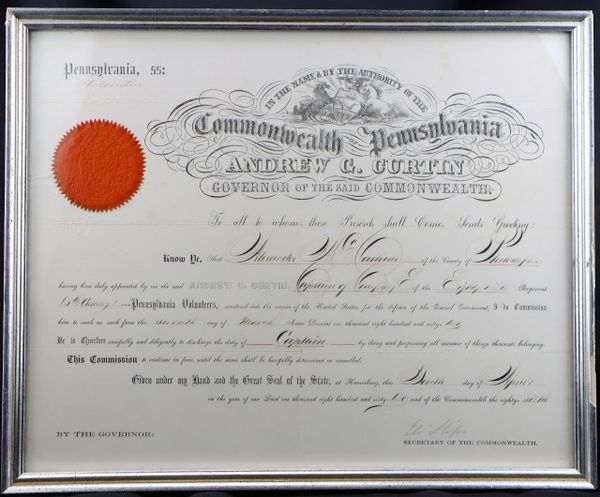 Pennsylvania, ss:
IN THE NAME & BY THE AUTHORITY OF THE
Commonwealth of Pennsylvania
ANDREW G. CURTIN
GOVERNOR OF THE SAID COMMONWEALTH.
To all to whom these Presents shall Come, Sends Greeting:
Know Ye, That Alexander of the County of
having been duly appointed by me the said ANDREW G. CURTIN, Captain of Company E of the Regiment
Pennsylvania Volunteers, mustered into the service of the United States, for the defence of the General Government, I do Commission
him to rank as such from the day of March Anno Domini one thousand eight hundred and sixty
Be is Therefore carefully and diligently to discharge the duty of Captain by doing and performing all manner of things thereunto belonging.
This Commission to continue in force, until the same shall be lawfully determined or annulled.
Given under my Hand and the Great Seal of the State, at Harrisburg, this day of
in the year of our Lord one thousand eight hundred and sixty and of the Commonwealth the eighty
Eli Slifer
BY THE GOVERNOR:
SECRETARY OF THE COMMONWEALTH.